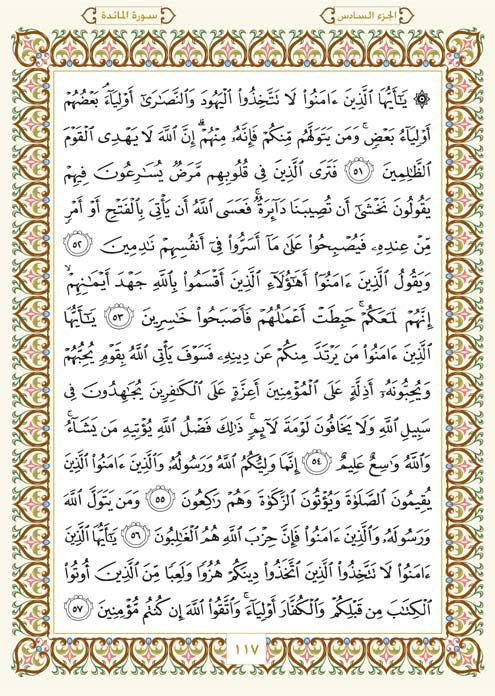 الجزء السادس
سورة المائدة
۞ يَٰٓأَيُّهَا ٱلَّذِينَ ءَامَنُوا۟ لَا تَتَّخِذُوا۟ ٱلْيَهُودَ وَٱلنَّصَٰرَىٰٓ أَوْلِيَآءَۘ بَعْضُهُمْ
أَوْلِيَآءُ بَعْضٍۚ وَمَن يَتَوَلَّهُم مِّنكُمْ فَإِنَّهُۥ مِنْهُمْۗ إِنَّ ٱللَّهَ لَا يَهْدِى ٱلْقَوْمَ
ٱلظَّٰلِمِينَ ٥١ فَتَرَى ٱلَّذِينَ فِى قُلُوبِهِم مَّرَضٌ يُسَٰرِعُونَ فِيهِمْ
يَقُولُونَ نَخْشَىٰٓ أَن تُصِيبَنَا دَآئِرَةٌۚ فَعَسَى ٱللَّهُ أَن يَأْتِىَ بِٱلْفَتْحِ أَوْ أَمْرٍ
مِّنْ عِندِهِۦ فَيُصْبِحُوا۟ عَلَىٰ مَآ أَسَرُّوا۟ فِىٓ أَنفُسِهِمْ نَٰدِمِينَ ٥٢
وَيَقُولُ ٱلَّذِينَ ءَامَنُوٓا۟ أَهَٰٓؤُلَآءِ ٱلَّذِينَ أَقْسَمُوا۟ بِٱللَّهِ جَهْدَ أَيْمَٰنِهِمْۙ
إِنَّهُمْ لَمَعَكُمْۚ حَبِطَتْ أَعْمَٰلُهُمْ فَأَصْبَحُوا۟ خَٰسِرِينَ ٥٣ يَٰٓأَيُّهَا
ٱلَّذِينَ ءَامَنُوا۟ مَن يَرْتَدَّ مِنكُمْ عَن دِينِهِۦ فَسَوْفَ يَأْتِى ٱللَّهُ بِقَوْمٍ يُحِبُّهُمْ
وَيُحِبُّونَهُۥٓ أَذِلَّةٍ عَلَى ٱلْمُؤْمِنِينَ أَعِزَّةٍ عَلَى ٱلْكَٰفِرِينَ يُجَٰهِدُونَ فِى
سَبِيلِ ٱللَّهِ وَلَا يَخَافُونَ لَوْمَةَ لَآئِمٍۚ ذَٰلِكَ فَضْلُ ٱللَّهِ يُؤْتِيهِ مَن يَشَآءُۚ
وَٱللَّهُ وَٰسِعٌ عَلِيمٌ ٥٤ إِنَّمَا وَلِيُّكُمُ ٱللَّهُ وَرَسُولُهُۥ وَٱلَّذِينَ ءَامَنُوا۟ ٱلَّذِينَ
يُقِيمُونَ ٱلصَّلَوٰةَ وَيُؤْتُونَ ٱلزَّكَوٰةَ وَهُمْ رَٰكِعُونَ ٥٥ وَمَن يَتَوَلَّ ٱللَّهَ
وَرَسُولَهُۥ وَٱلَّذِينَ ءَامَنُوا۟ فَإِنَّ حِزْبَ ٱللَّهِ هُمُ ٱلْغَٰلِبُونَ ٥٦ يَٰٓأَيُّهَا ٱلَّذِينَ
ءَامَنُوا۟ لَا تَتَّخِذُوا۟ ٱلَّذِينَ ٱتَّخَذُوا۟ دِينَكُمْ هُزُوًا وَلَعِبًا مِّنَ ٱلَّذِينَ أُوتُوا۟
ٱلْكِتَٰبَ مِن قَبْلِكُمْ وَٱلْكُفَّارَ أَوْلِيَآءَۚ وَٱتَّقُوا۟ ٱللَّهَ إِن كُنتُم مُّؤْمِنِينَ ٥٧
١١٧